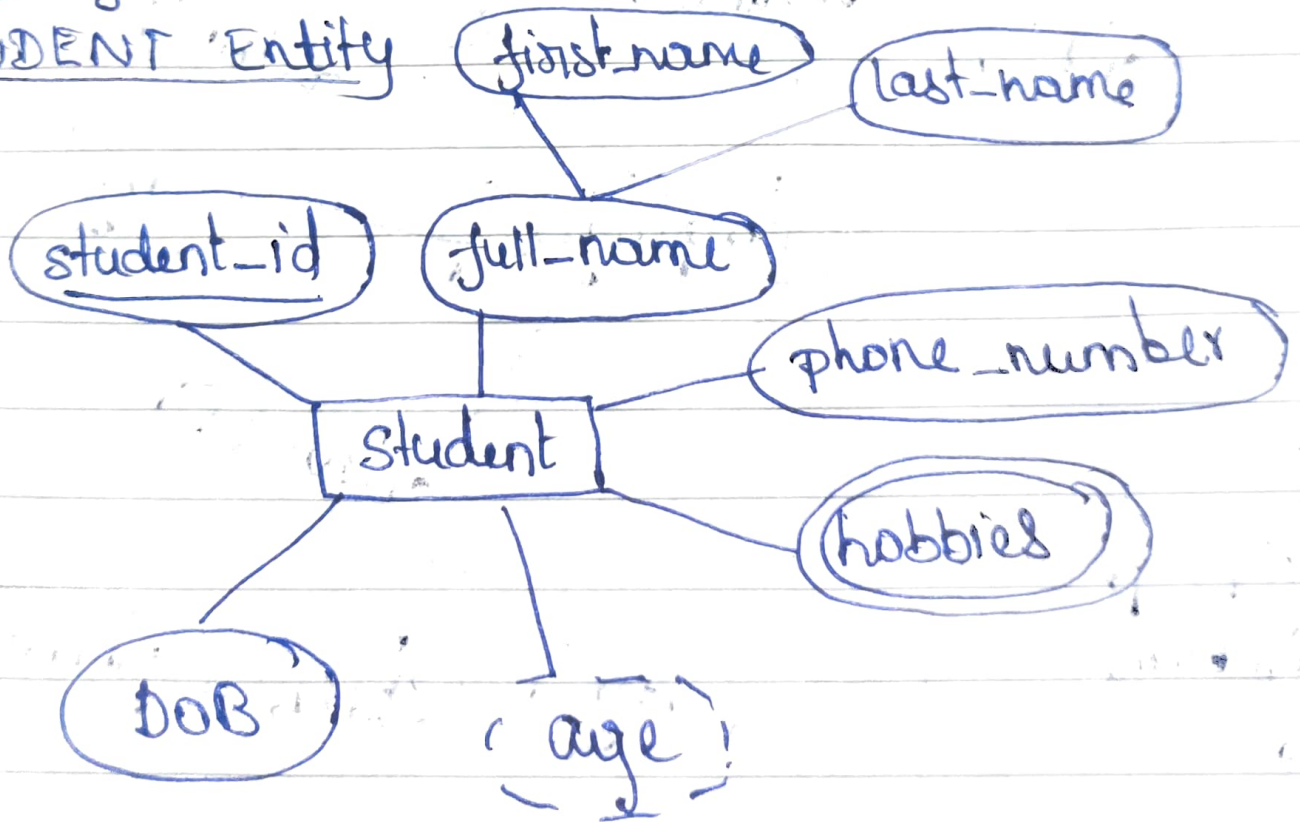 DENT Entity
first_name
last_name
student_id
full_name
phone_number
student
hobbies
DOB
age